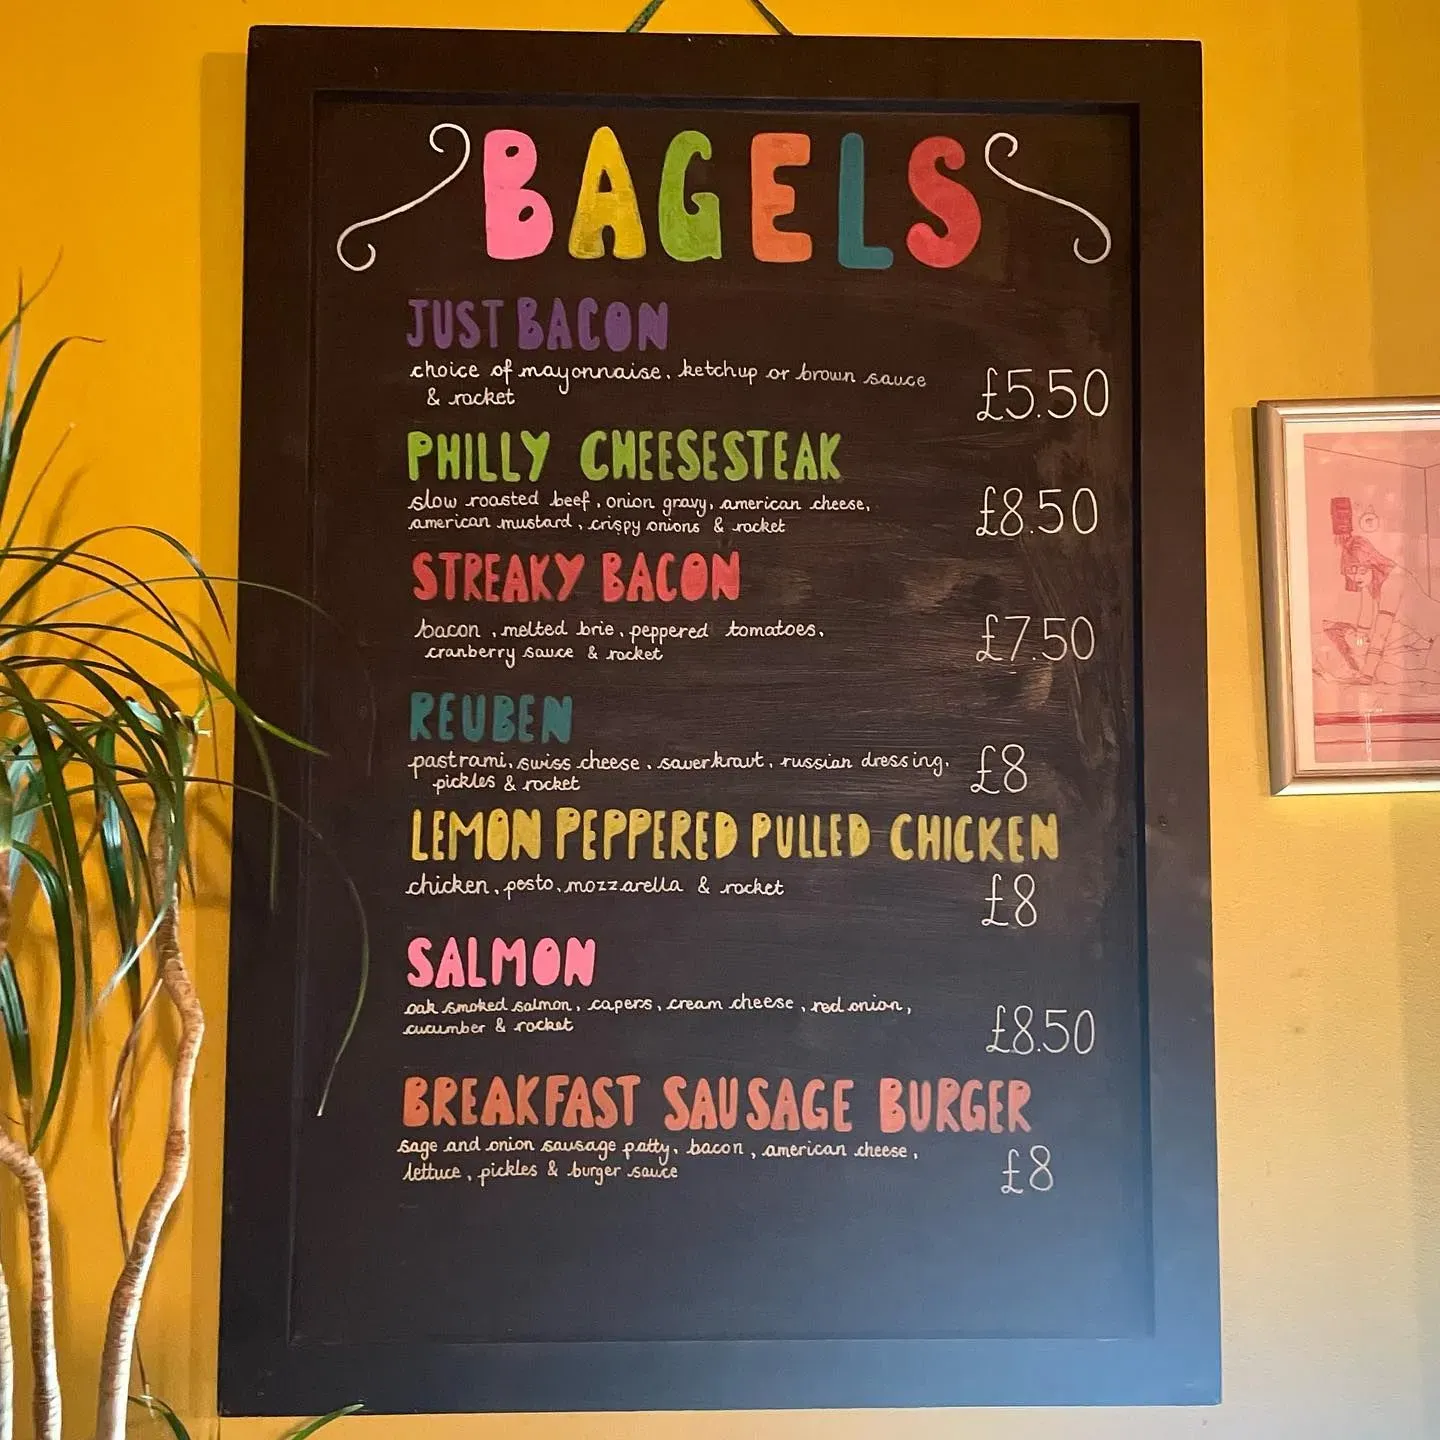 BAGELS
JUST BACON
choice of mayonnaise, ketchup or brown sauce
& rocket
£5.50
PHILLY CHEESESTEAK
slow roasted beef, onion gravy, american cheese,
american mustard, crispy onions & rocket
£8.50
STREAKY BACON
bacon, melted brie, peppered tomatoes,
cranberry sauce & rocket
£7.50
REUBEN
pastrami, swiss cheese, sauerkraut, russian dressing,
pickles & rocket
£8
LEMON PEPPERED PULLED CHICKEN
chicken, pesto, mozzarella & rocket
£8
SALMON
oak smoked salmon, capers, cream cheese, red onion,
cucumber & rocket
£8.50
BREAKFAST SAUSAGE BURGER
sage and onion sausage patty, bacon, american cheese,
lettuce, pickles & burger sauce
£8